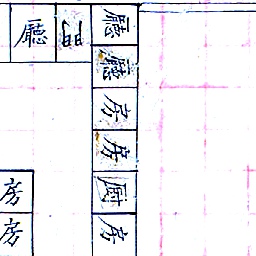 廳
廳
廳
房
房
厨
房
房
房